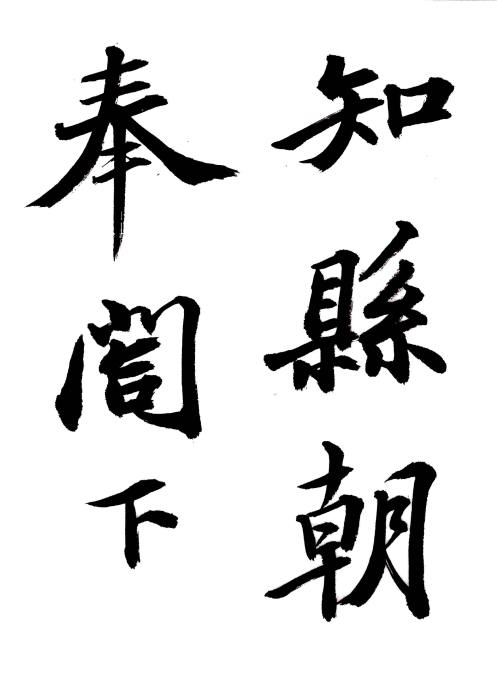 知縣朝
奉閤下